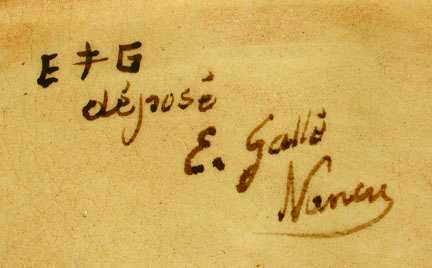 E ‡ G
déposé
E. Gallé
Nancy